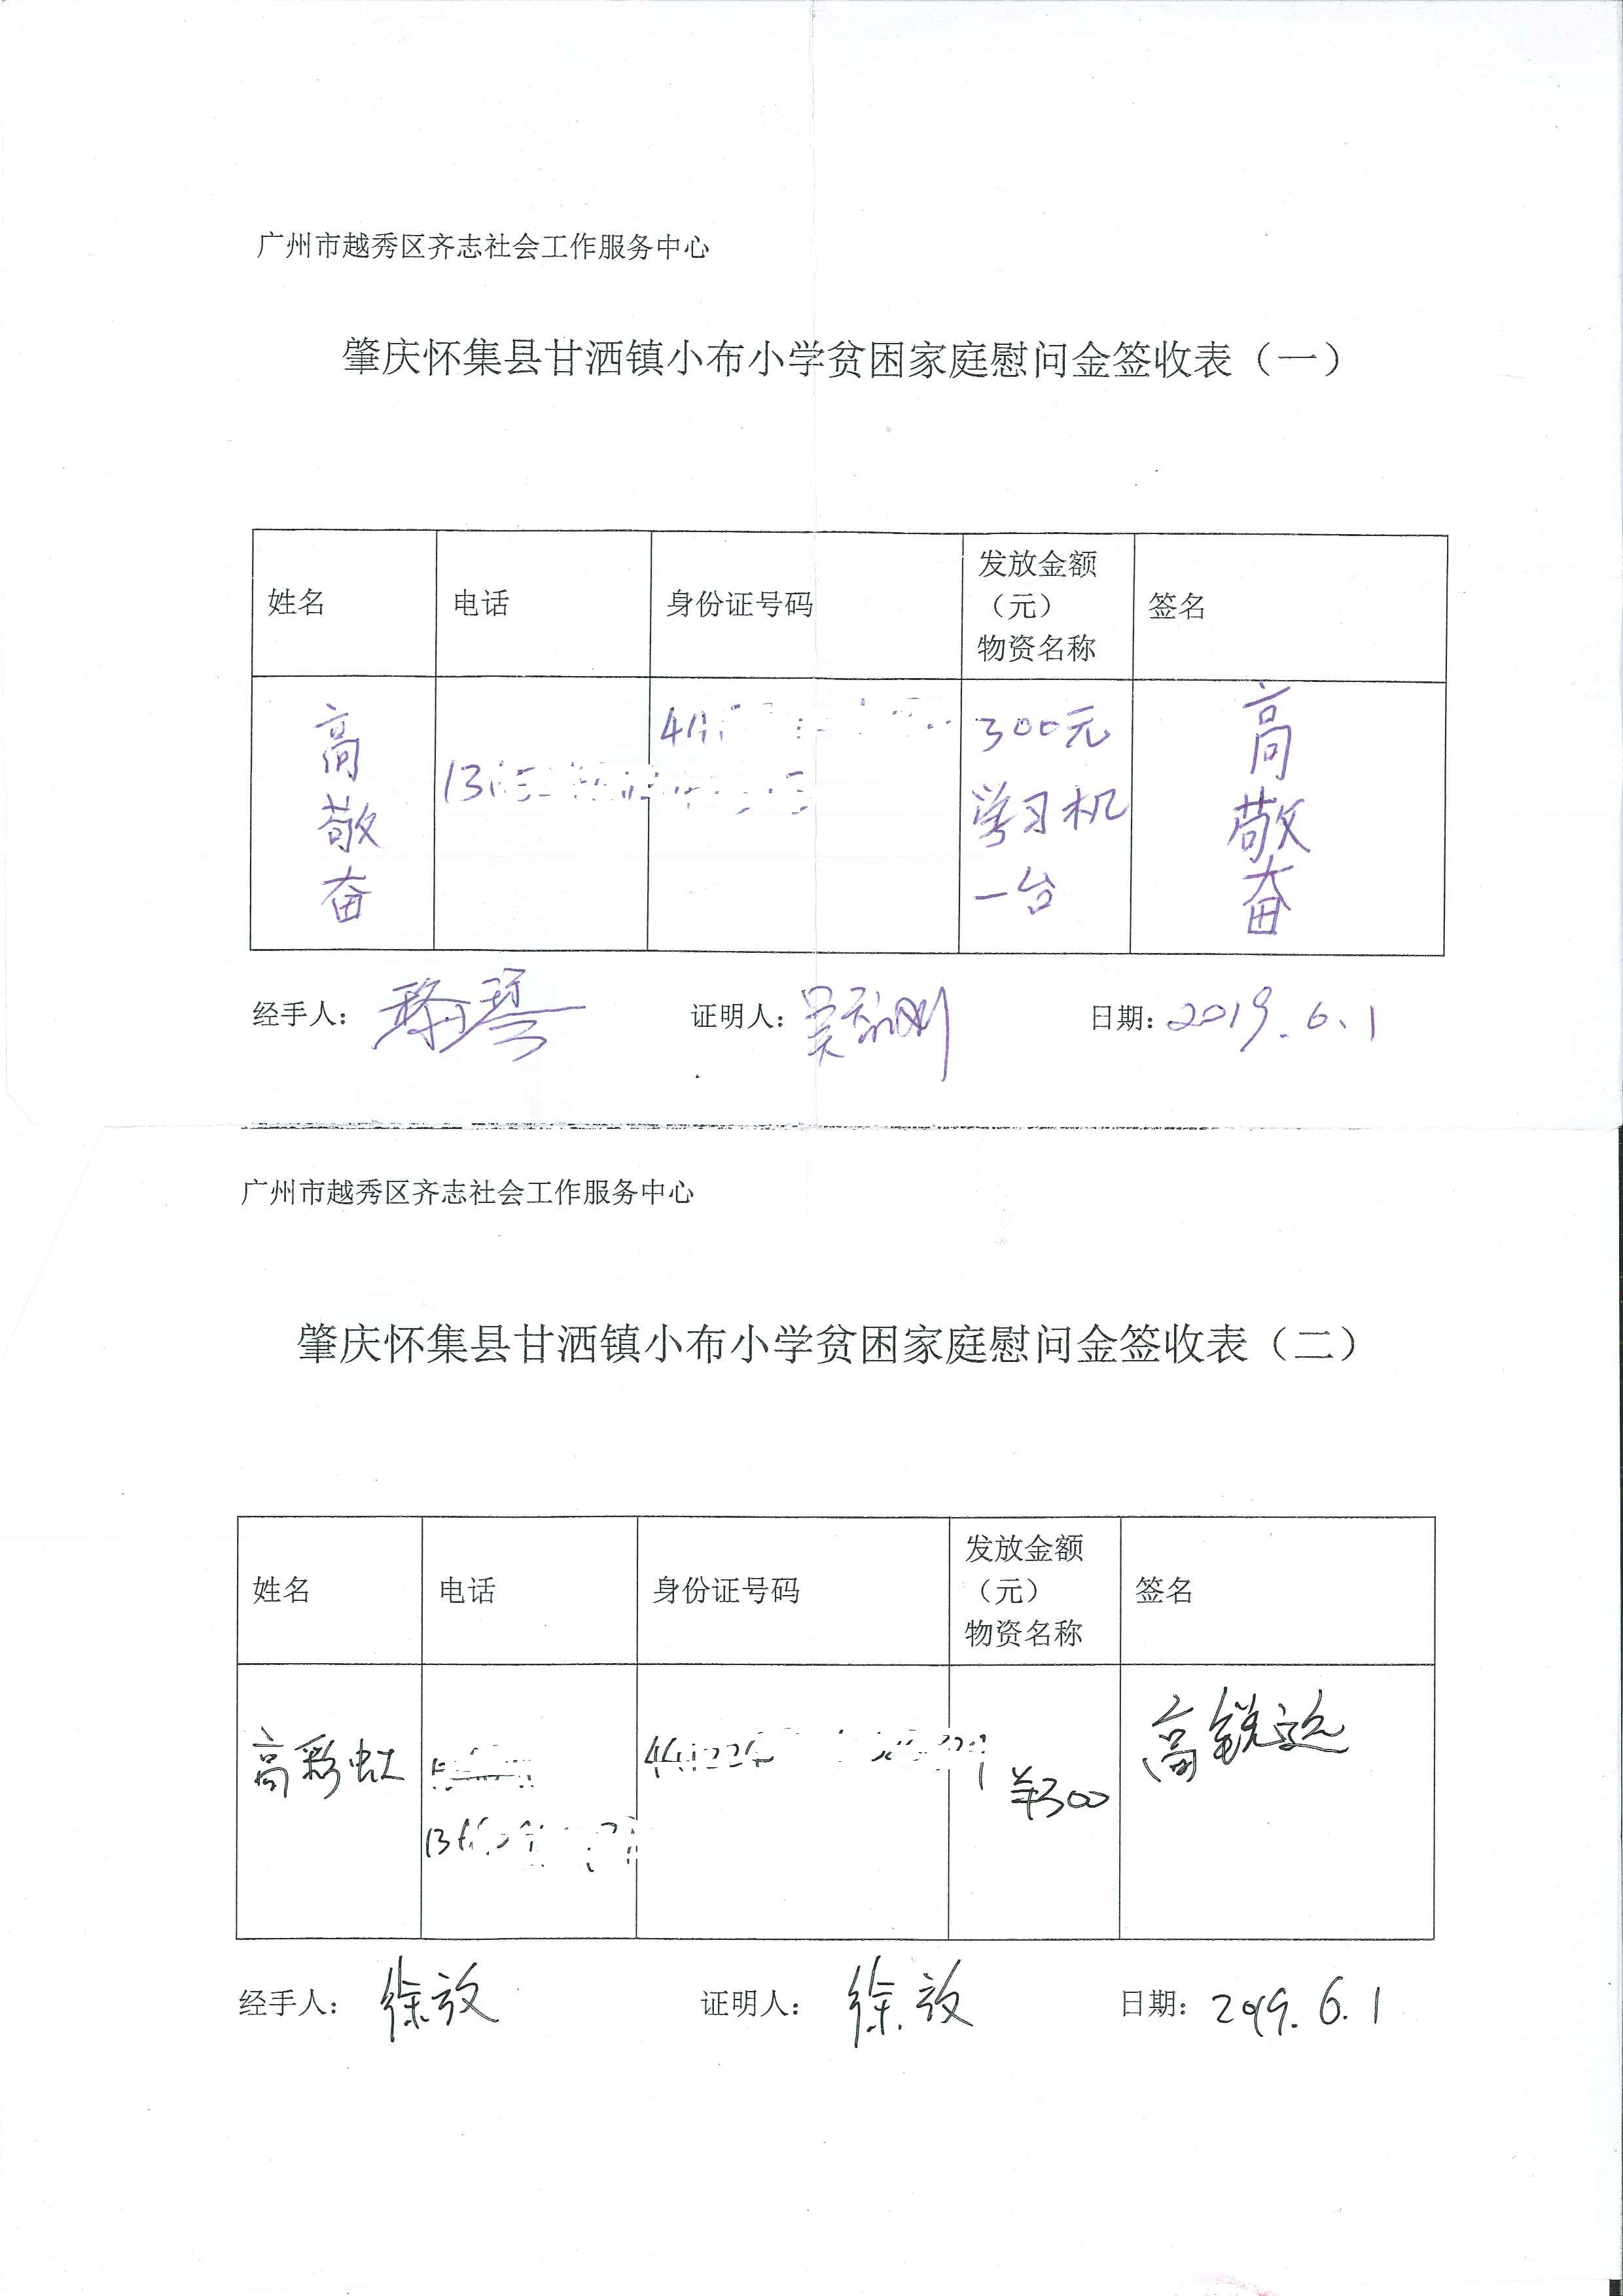 广州市越秀区齐志社会工作服务中心
肇庆怀集县甘洒镇小布小学贫困家庭慰问金签收表（一）
姓名 电话 身份证号码 发放金额（元）物资名称 签名
高敬奋 300元 学习机一台 高敬奋
经手人： 证明人： 日期：2019.6.1
广州市越秀区齐志社会工作服务中心
肇庆怀集县甘洒镇小布小学贫困家庭慰问金签收表（二）
姓名 电话 身份证号码 发放金额（元）物资名称 签名
高彩虹 ¥300 高锐远
经手人：徐放 证明人：徐放 日期：2019.6.1